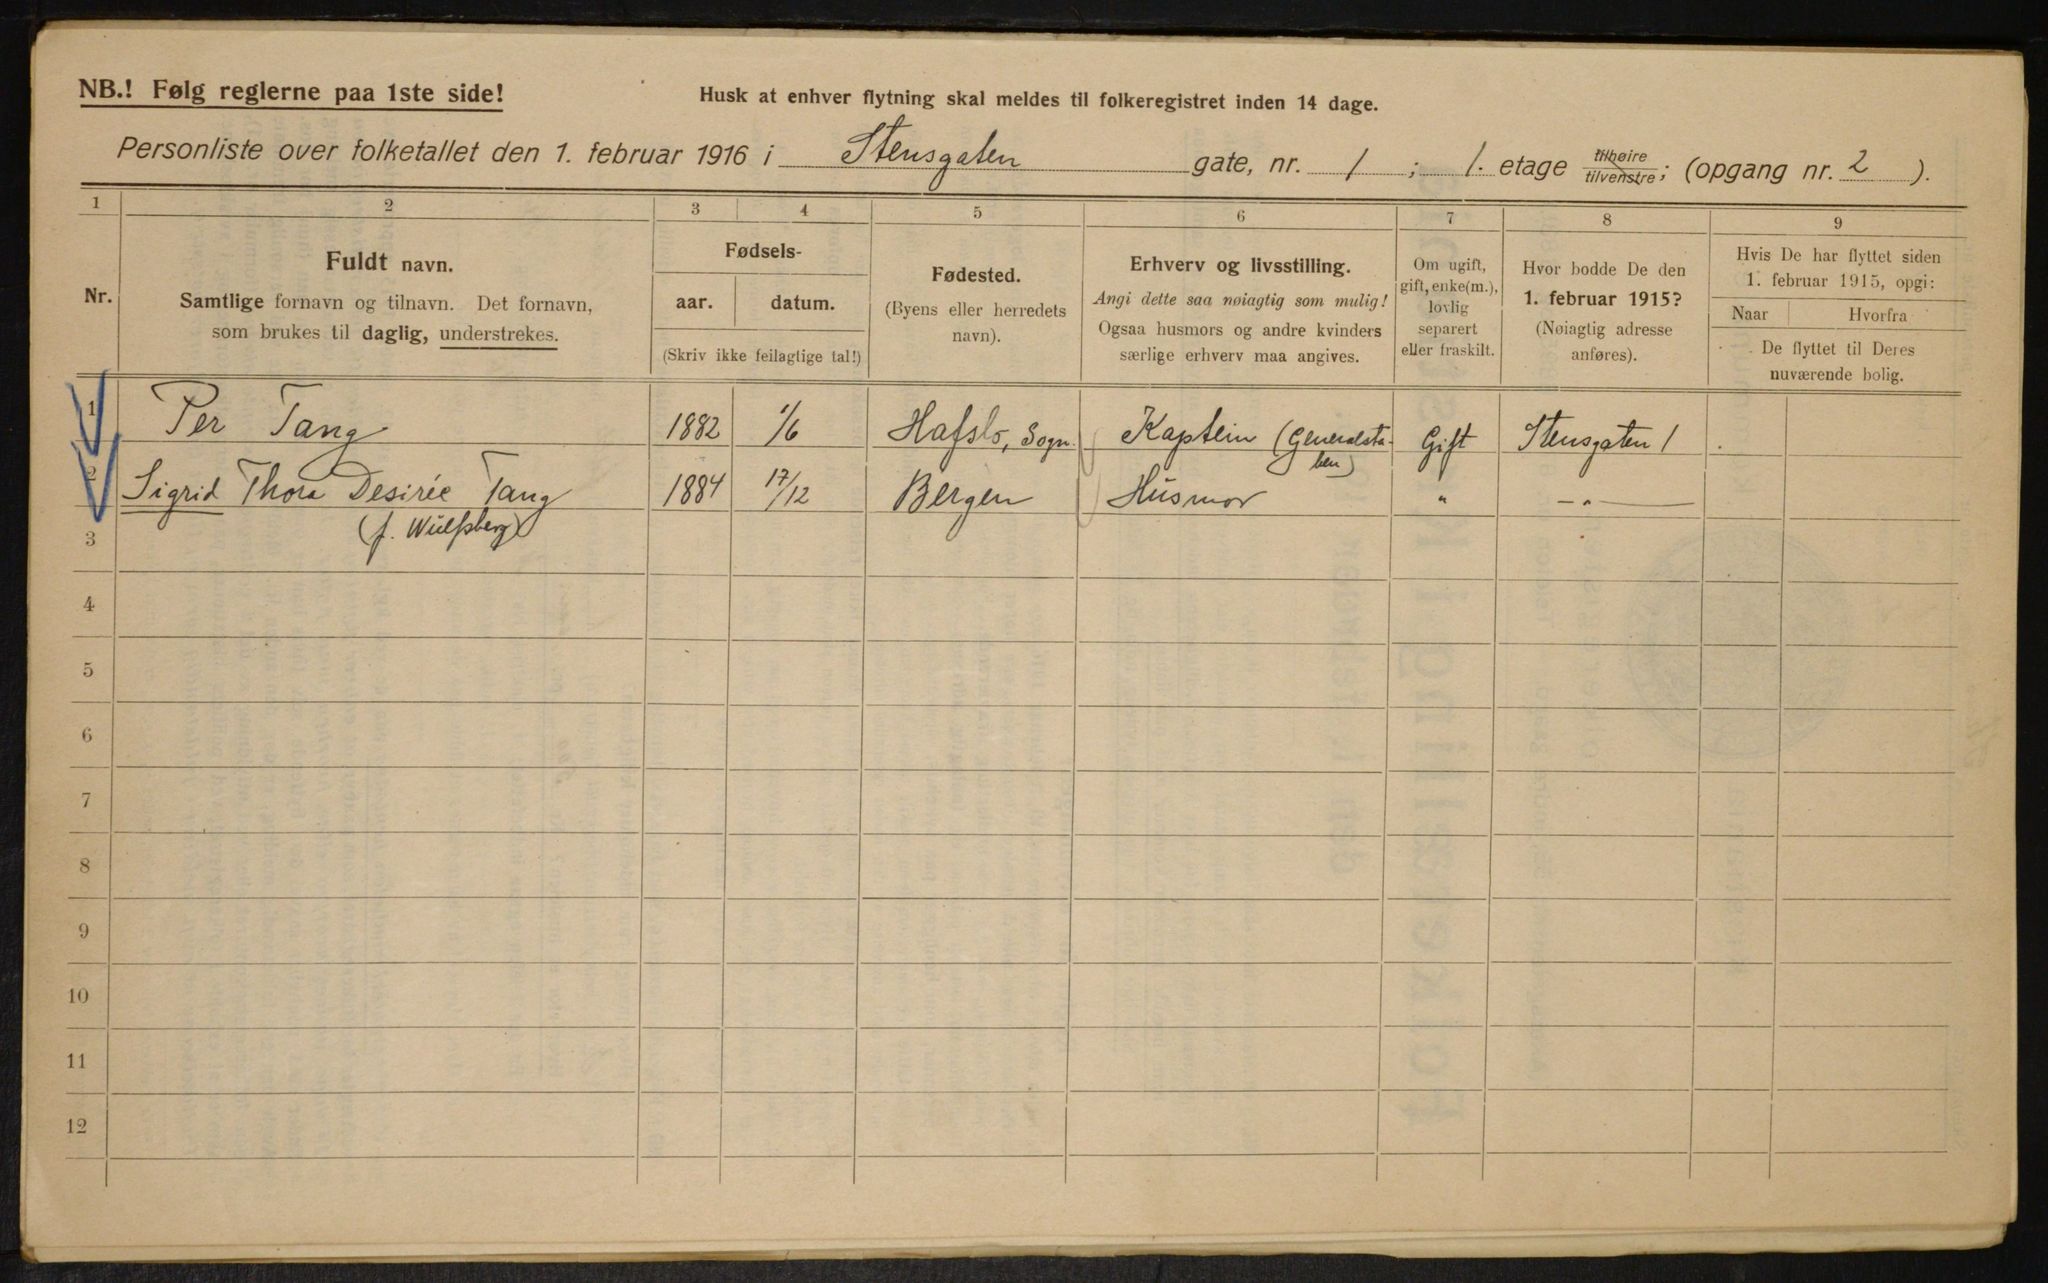 NB.! Følg reglerne paa 1ste side!
Husk at enhver flytning skal meldes til folkeregistret inden 14 dage.
Personliste over folketallet den 1. februar 1916 i Stensgaten gate, nr. 1 ; 1. etage tilhøire tilvenstre ; (opgang nr. 2 ).
1 2 3 4 5 6 7 8 9
Nr.
Fuldt navn.
Samtlige fornavn og tilnavn. Det fornavn,
som brukes til daglig, understrekes.
Fødsels-
aar. datum.
(Skriv ikke feilagtige tal!)
Fødested.
(Byens eller herredets
navn).
Erhverv og livsstilling.
Angi dette saa nøiagtig som mulig!
Ogsaa husmors og andre kvinders
særlige erhverv maa angives.
Om ugift,
gift, enke(m.),
lovlig
separert
eller fraskilt.
Hvor bodde De den
1. februar 1915?
(Nøiagtig adresse
anføres).
Hvis De har flyttet siden
1. februar 1915, opgi:
Naar Hvorfra
De flyttet til Deres
nuværende bolig.
1 Per Tang 1882 1/6 Hafslo, Sogn. Kaptein (Generalsta- Gift Stensgaten 1
ben)
2 Sigrid Thora Desirée Tang 1884 17/12 Bergen Husmor " — " —
3 (f. Wulfsberg)
4
5
6
7
8
9
10
11
12